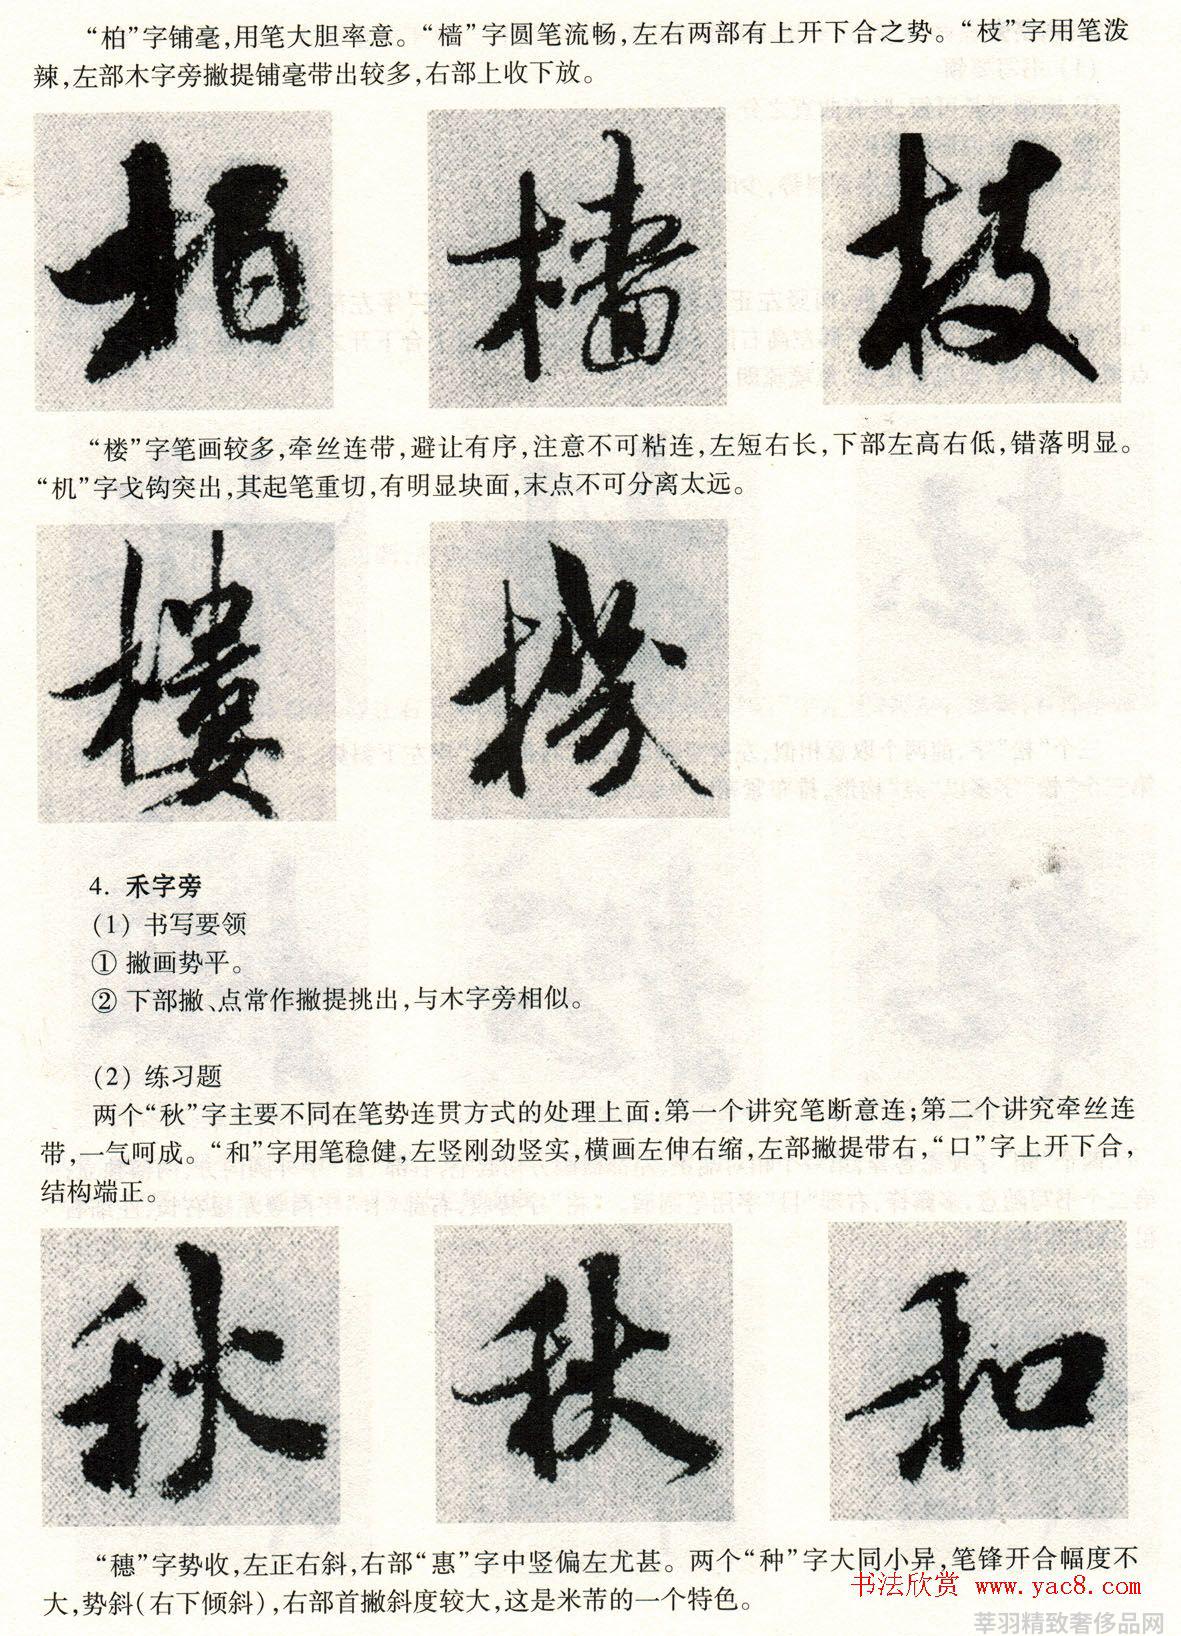 “柏”字铺毫,用笔大胆率意。“樯”字圆笔流畅,左右两部有上开下合之势。“枝”字用笔泼
辣,左部木字旁撇提铺毫带出较多,右部上收下放。
柏 檣 枝
“楼”字笔画较多,牵丝连带,避让有序,注意不可粘连,左短右长,下部左高右低,错落明显。
“机”字戈钩突出,其起笔重切,有明显块面,末点不可分离太远。
樓 機
4. 禾字旁
(1) 书写要领
① 撇画势平。
② 下部撇、点常作撇提挑出,与木字旁相似。
(2) 练习题
两个“秋”字主要不同在笔势连贯方式的处理上面:第一个讲究笔断意连;第二个讲究牵丝连
带,一气呵成。“和”字用笔稳健,左竖刚劲竖实,横画左伸右缩,左部撇提带右,“口”字上开下合,
结构端正。
秋 秋 和
“穗”字势收,左正右斜,右部“惠”字中竖偏左尤甚。两个“种”字大同小异,笔锋开合幅度不
大,势斜(右下倾斜),右部首撇斜度较大,这是米芾的一个特色。
书法欣赏 www.yac8.com
莘羽精致奢侈品网